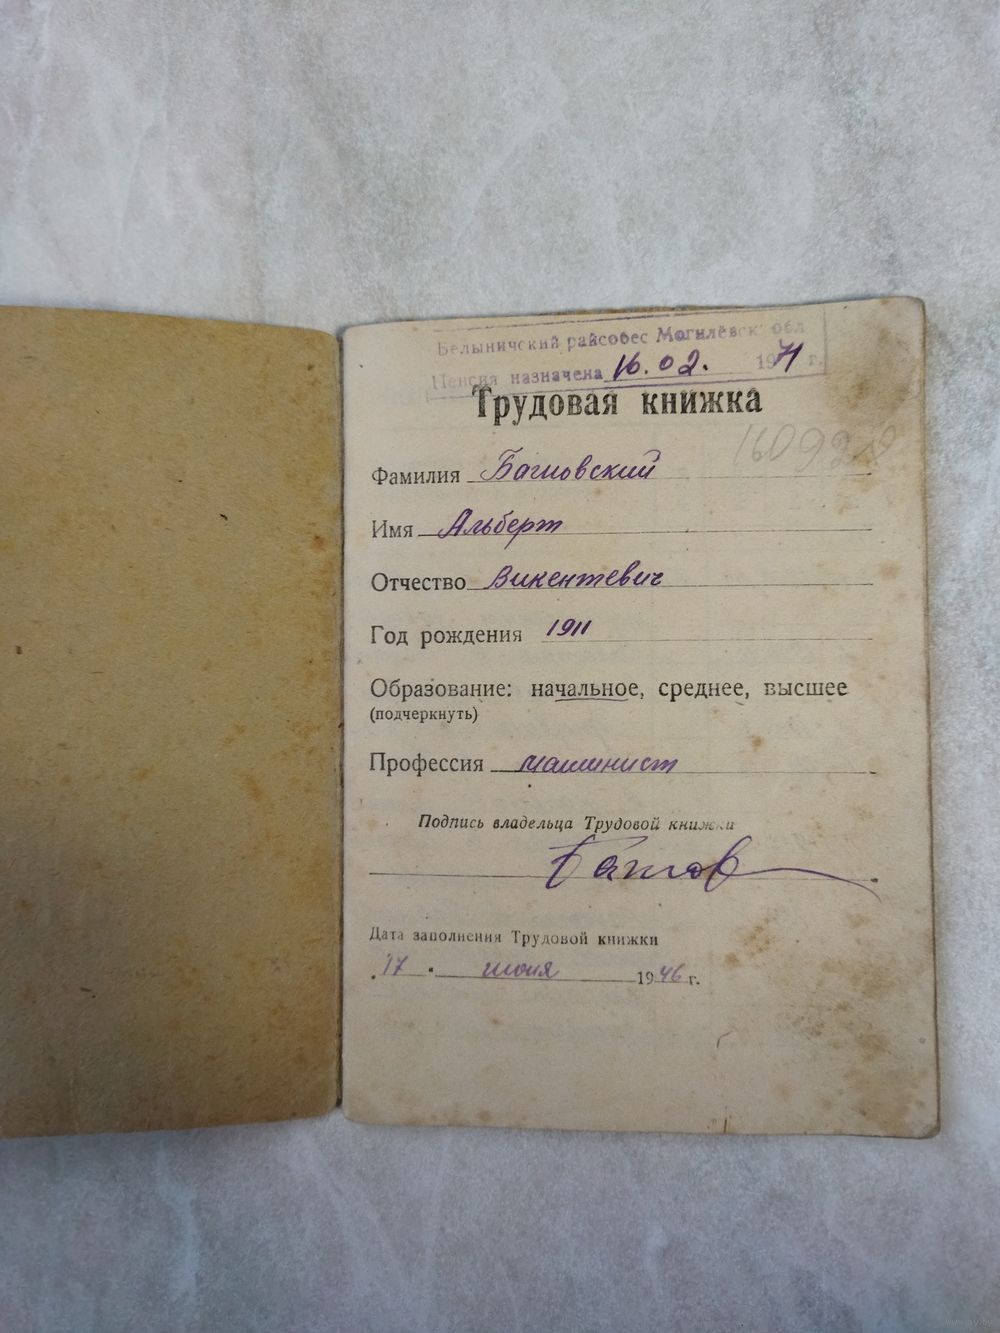 Белыничский райсобес Могилёвск. обл
Пенсия назначена 16.02. 1971 г.
Трудовая книжка
Фамилия
Имя Альберт
Отчество Викентевич
Год рождения 1911
Образование: начальное, среднее, высшее
(подчеркнуть)
Профессия машинист
Подпись владельца Трудовой книжки
Дата заполнения Трудовой книжки
"17" июня 1946 г.